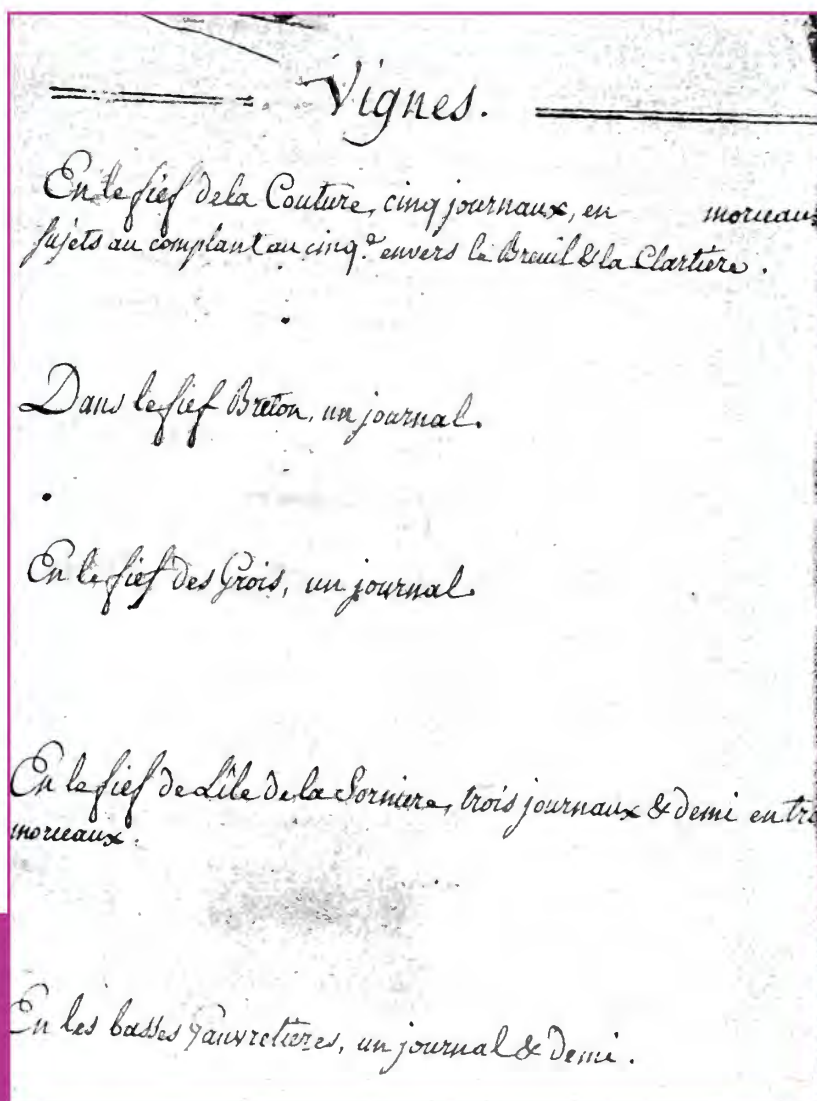 Vignes.
En le fief de la Couture, cinq journaux, en morceaux
sujets au complant au cinq.e envers le Breuil & la Clartière.
Dans le fief Breton, un journal.
En le fief des Grois, un journal.
En le fief de L'île de la Sorniere, trois journaux & demi en
morceaux.
En les basses, un journal & demi.